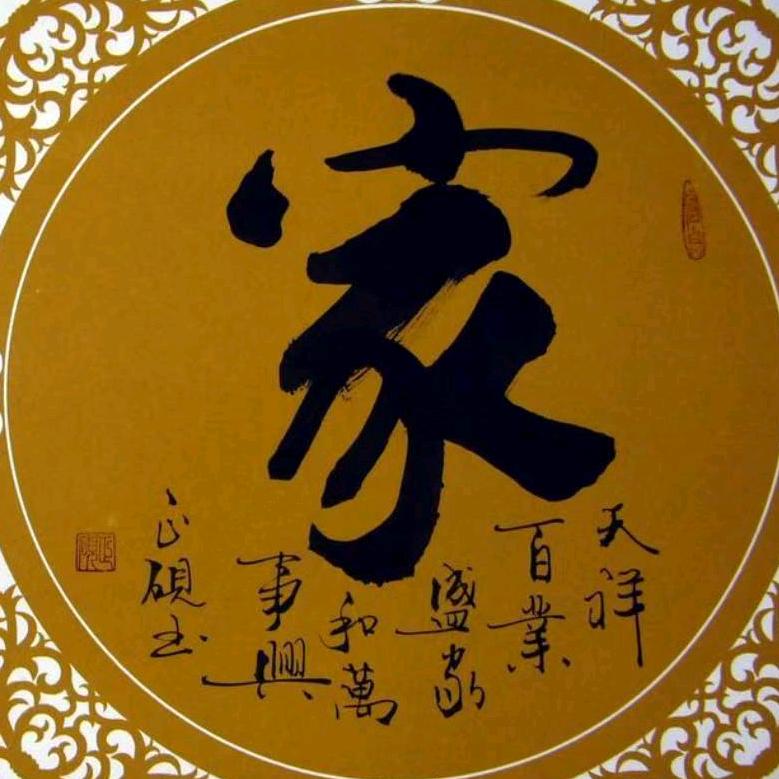 家
天祥
百業
盛家
和萬
事興
正硯書